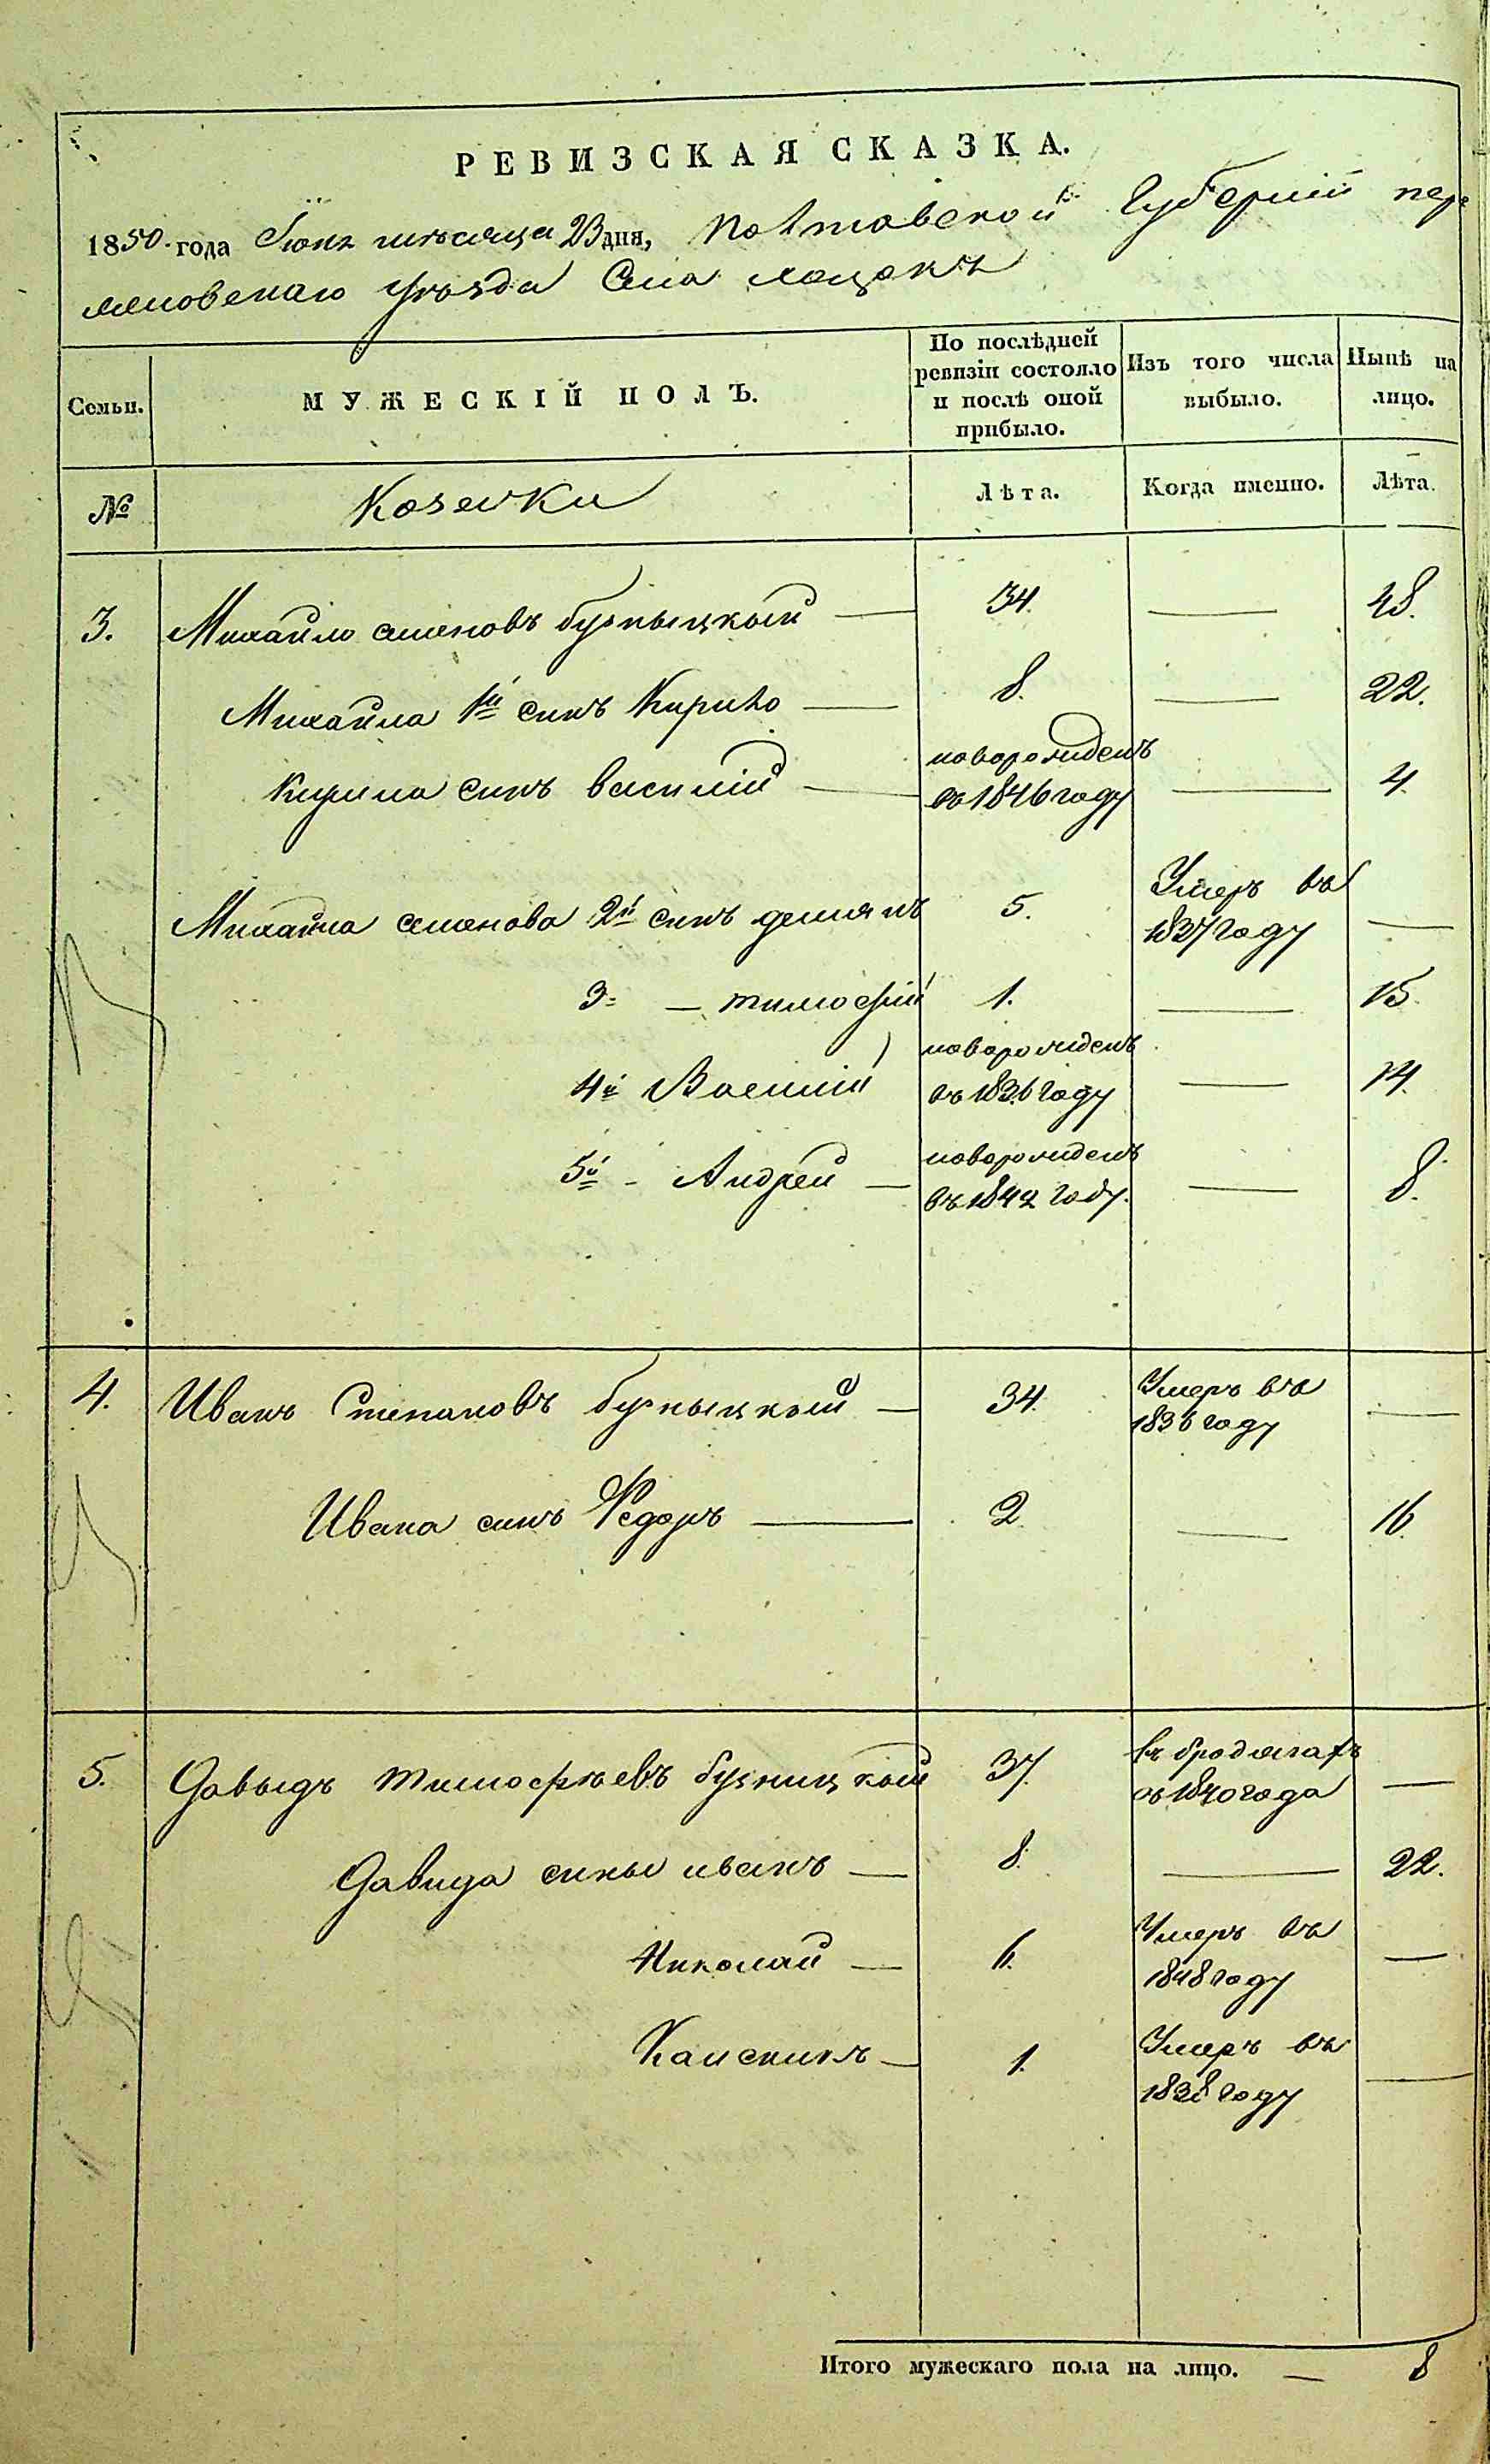 РЕВИЗСКАЯ СКАЗКА.
1850 года Июня месяца 23 дня, Полтавской Губернии пере
яславского уезда Села
Семьи. МУЖЕСКІЙ ПОЛЪ. По послѣдней ревизіи состояло и послѣ оной прибыло. Изъ того числа выбыло. Нынѣ на лицо.
№ Козачки Лѣта. Когда именно. Лѣта.
3. Михайло семеновъ 34. — 48.
Михайла 1й синъ Кирило — 8. — 22.
Кирила синъ василій — новорожденъ въ 1846 году — 4.
Михайла семенова 2й синъ демянъ 5. Умеръ въ 1837 году —
3 — тимофій 1. — 15.
4й Василій новорожденъ въ 1836 году — 14.
5й - Андрей — новорожденъ въ 1842 году. — 8.
4. Иванъ Степановъ — 34. Умеръ въ 1836 году —
Ивана синъ Федоръ — 2 — 16.
5. Давыдъ тимофѣевъ 37. въ бродягахъ съ 1840 года —
Давида сины иванъ — 8. — 22.
Николай — 6. Умеръ въ 1848 году —
— 1. Умеръ въ 1838 году —
Итого мужескаго пола на лицо. — 8